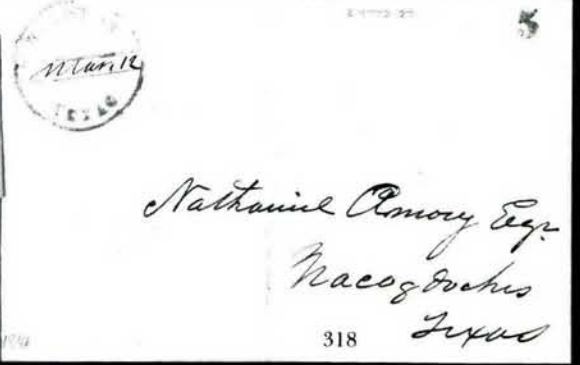 5
Mar. 12
TEXAS
Nathaniel Amory Esqr.
Nacogdoches
Texas
318